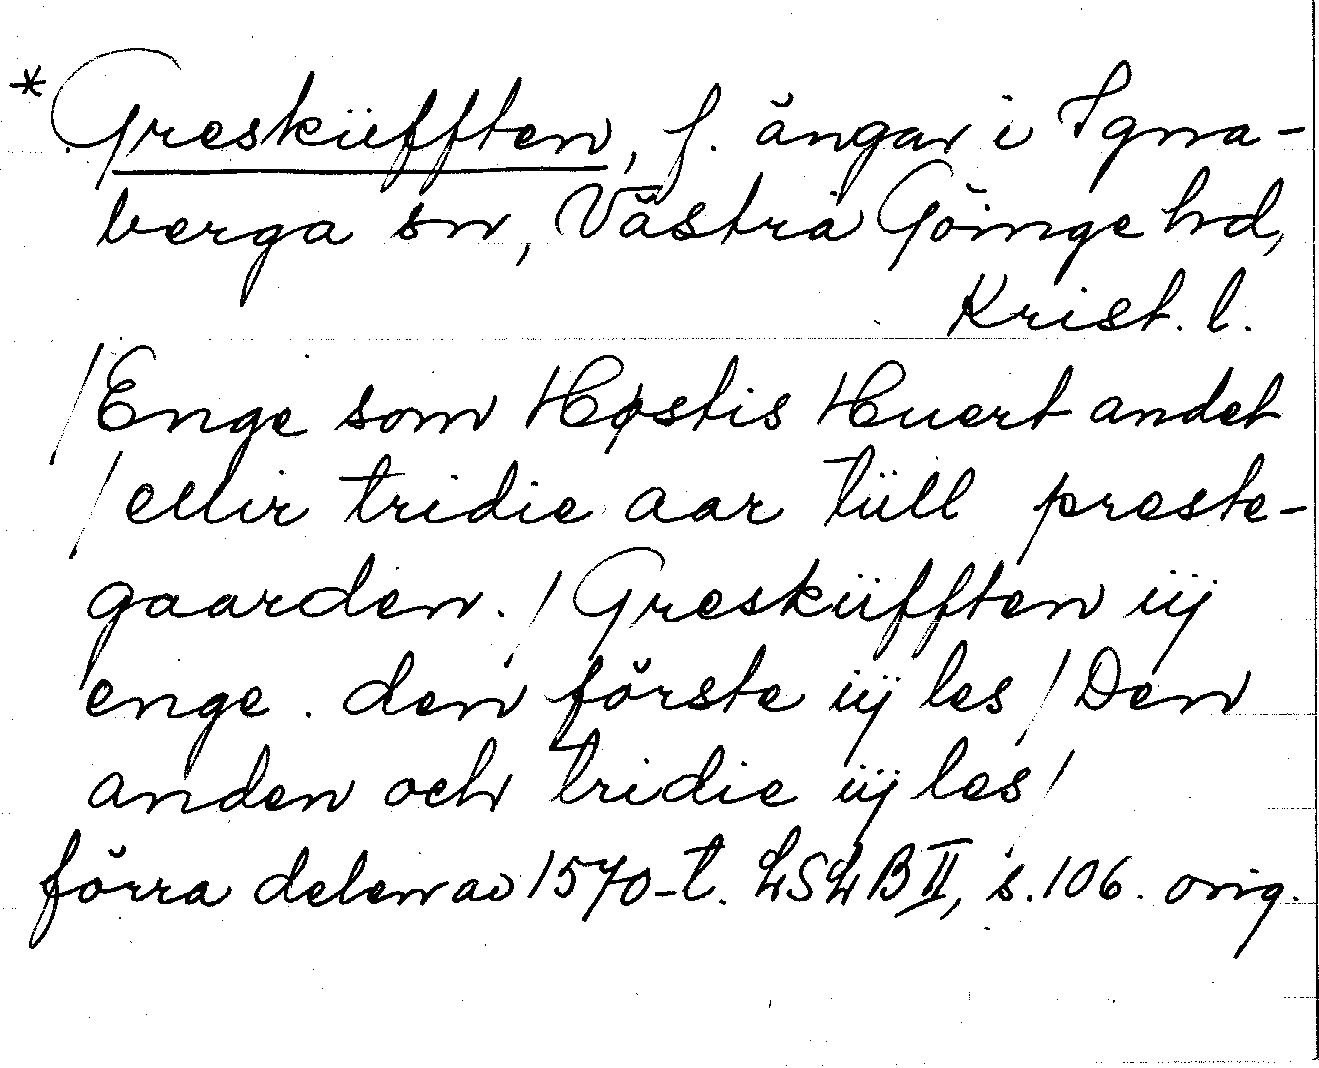 * Gresküfften, f. ängar i Igna-
berga sn, Västra Göinge hd,
Krist. l.
/Enge som Høstis Huert andet
/ellir tridie aar tüll preste-
gaarden./ Greskiifften iij
enge. den förste iij les/Den
anden och tridie iij les/
förra delen av 1570-t. LSLB II, s. 106. orig.